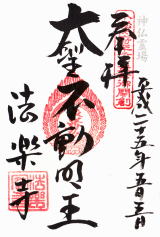 奉拝
平成二十五年五月三日
大聖不動明王
法楽寺
神仏霊場